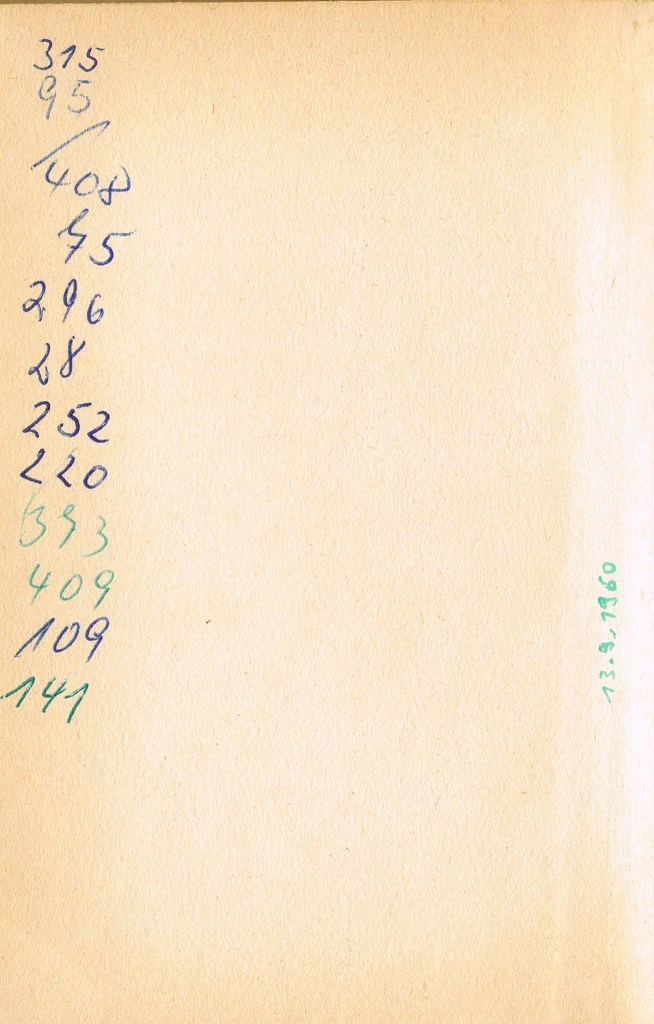 315
95
/408
75
296
28
252
220
393
409
109
141
13.9.1960